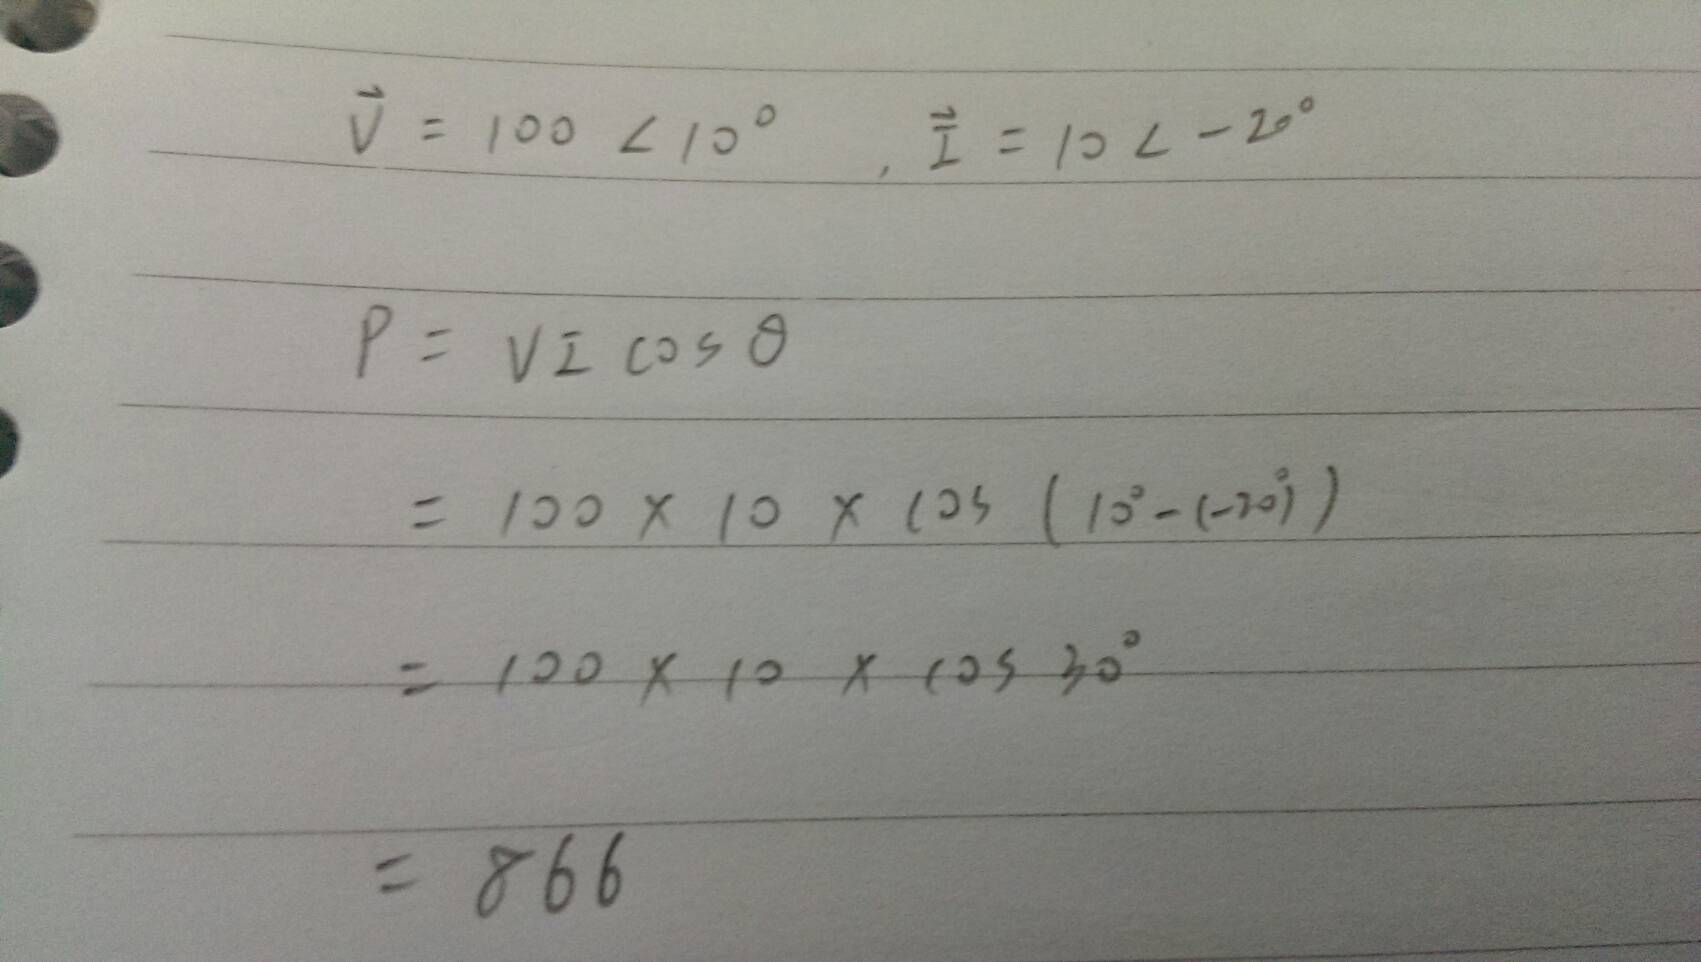 V⃗ = 100 ∠10° , I⃗ = 10 ∠ -20°
P = VI cos θ
= 100 × 10 × cos (10° - (-20°))
= 100 × 10 × cos 30°
= 866